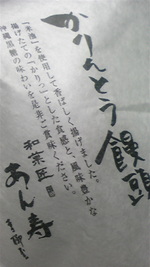 かりんとう饅頭
「米油」を使用して香ばしく揚げました。
揚げたての「かりっ」とした食感と、風味豊かな
沖縄黒糖の味わいを是非ご賞味ください。
和菓匠
あん寿